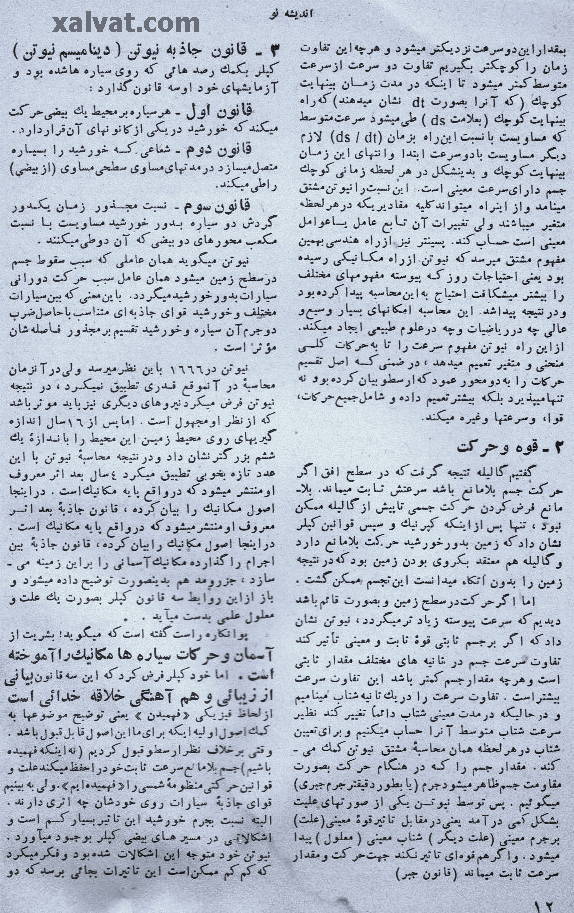 xalvat.com
اندیشه نو
بمقدار این دو سرعت نزدیکتر میشود و هر چه این تفاوت
زمان را کوچکتر بگیریم تفاوت دو سرعت از سرعت
متوسط کمتر میشود تا اینکه در مدت زمان بینهایت
کوچک (که آنرا بصورت dt نشان میدهند) که راه
بینهایت کوچک (بعلامت ds) طی میشود سرعت متوسط
که مساویست با نسبت این راه بزمان (ds / dt) لازم
دیگر مساویست با دو سرعت ابتدا و انتهای این زمان
بینهایت کوچک و بدینشکل در هر لحظه زمانی کوچک
جسم دارای سرعت معینی است. این نسبت را نیوتن مشتق
مینامد و از اینراه میتواند کلیه مقادیریکه در هر لحظه
متغیر میباشند ولی تغییرات آن تابع عامل یا عوامل
معینی است حساب کند. لیبنتز نیز از راه هندسی بهمین
مفهوم مشتق میرسد که نیوتن از راه مکانیکی رسیده
بود یعنی احتیاجات روز که پیوسته مفهومهای مختلف
را بیشتر میشکافت احتیاج به این محاسبه پیدا کرده بود
و در نتیجه پیدا شد. این محاسبه امکانهای بسیار وسیع و
عالی چه در ریاضیات و چه در علوم طبیعی ایجاد میکند.
از این راه نیوتن مفهوم سرعت را تا به حرکات کلی
منحنی و متغیر تعمیم میدهد، در ضمنی که اصل تقسیم
حرکات را به دو محور عمود که ارسطو بیان کرده بود نه
تنها میپذیرد بلکه بیشتر تعمیم داده و شامل جمیع حرکات،
قوا، و سرعتها وغیره میکند.
۲ - قوه و حرکت
گفتیم گالیله نتیجه گرفت که در سطح افق اگر
حرکت جسم بلامانع باشد سرعتش ثابت میماند. بلا-
مانع فرض کردن حرکت جسمی تا پیش از گالیله ممکن
نبود، تنها پس از اینکه کپرنیک و سپس قوانین کپلر
نشان داد که زمین بدور خورشید حرکت بلامانع دارد
و گالیله هم معتقد بکروی بودن زمین بود که در نتیجه
زمین را بدون اتکاء میدانست این تجسم ممکن گشت.
اما اگر حرکت در سطح زمین و بصورت قائم باشد
دیدیم که سرعت پیوسته زیاد تر میگردد، نیوتن نشان
داد که اگر بر جسم ثابتی قوهٔ ثابت و معینی تأثیر کند
تفاوت سرعت جسم در ثانیه های مختلف مقدار ثابتی
است و هر چه مقدار جسم کمتر باشد این تفاوت سرعت
بیشتر است. تفاوت سرعت را در یک ثانیه شتاب مینامیم
و در حالیکه در مدت معینی شتاب دائماً تغییر کند نظیر
سرعت شتاب متوسط آنرا حساب میکنیم و برای تعیین
شتاب در هر لحظه همان محاسبهٔ مشتق نیوتن کمک می-
کند. مقدار جسم را که در هنگام حرکت بصورت
مقاومت جسم ظاهر میشود جرم (یا بطور دقیقتر جرم جبری)
میگوئیم. پس توسط نیوتن یکی از صورتهای علیت
بشکل کمی در آمد یعنی در مقابل تأثیر قوهٔ معینی (علت)
بر جرم معینی (علت دیگر) شتاب معینی (معلول) پیدا
میشود. و اگر هم قوه‌ای تأثیر نکند جهت حرکت و مقدار
سرعت ثابت میماند (قانون جبر)
۳ - قانون جاذبه نیوتن (دینامیسم نیوتن)
کپلر بکمک رصد هائی که روی سیاره ها شده بود و
آزمایشهای خود او سه قانون گذارد:
قانون اول - هر سیاره بر محیط یک بیضی حرکت
میکند که خورشید در یکی از کانونهای آن قرار دارد.
قانون دوم - شعاعی که خورشید را بسیاره
متصل میسازد در مدتهای مساوی سطحی مساوی (از بیضی)
را طی میکند.
قانون سوم - نسبت مجذور زمان یکدور
گردش دو سیاره بدور خورشید مساویست با نسبت
مکعب محورهای دو بیضی که آن دو طی میکنند.
نیوتن میگوید همان عاملی که سبب سقوط جسم
در سطح زمین میشود همان عامل سبب حرکت دورانی
سیارات بدور خورشید میگردد. باین معنی که بین سیارات
مختلف و خورشید قوای جاذبه‌ای متناسب با حاصل ضرب
دو جرم آن سیاره و خورشید تقسیم بر مجذور فاصله شان
مؤثر است.
نیوتن در ۱۶۶۶ باین نظر میرسد ولی در آنزمان
محاسبهٔ در آنموقع قدری تطبیق نمیکرد، در نتیجه
نیوتن فرض میکرد نیروهای دیگری نیز باید موثر باشد
که از نظر او مجهول است. اما پس از ۱۶ سال اندازه
گیریهای روی محیط زمین این محیط را باندازهٔ یک
ششم بزرگتر نشان داد و در نتیجه محاسبهٔ نیوتن با این
عدد تازه بخوبی تطبیق میکرد ۴ سال بعد اثر معروف
او منتشر میشود که در واقع پایه مکانیک است. در اینجا
اصول مکانیک را بیان کرده، قانون جاذبهٔ بعد اثر
معروف او منتشر میشود که در واقع پایه مکانیک است.
در اینجا اصول مکانیک را بیان کرده، قانون جاذبهٔ بین
اجرام را گذارده مکانیک آسمانی را بر این زمینه می-
سازد، جزر و مد هم بدینصورت توضیح داده میشود و
باز از این روابط سه قانون کپلر بصورت یک علت و
معلول علمی بدست میآید.
پوانکاره راست گفته است که میگوید: بشریت از
آسمان و حرکات سیاره ها مکانیک را آموخته
است. اما خود کپلر فرض کرد که این سه قانون بیانی
از زیبائی و هم آهنگی خلاقه خدائی است
از لحاظ فیزیکی «فهمیدن» یعنی توضیح موضوعها به
کمک اصول اولیه اینکه برای ما این اصول قابل قبول باشد.
وقتی بر خلاف نظر ارسطو قبول کردیم (نه اینکه فهمیده
باشیم) جسم بلامانع سرعت ثابت خود را حفظ میکند علت و
قوانین حرکتی منظومهٔ شمسی را «فهمیده ایم». ولی به بینیم
قوای جاذبهٔ سیارات روی خودشان چه اثری دارند.
البته نسبت بجرم خورشید این تأثیر بسیار کم است و
اشکالاتی در مسیر های بیضی کپلر بوجود میآورد.
نیوتن خود متوجه این اشکالات شده بود و فکر میکرد
که کم کم ممکن است این تأثیرات بجائی برسد که دو
۱۲